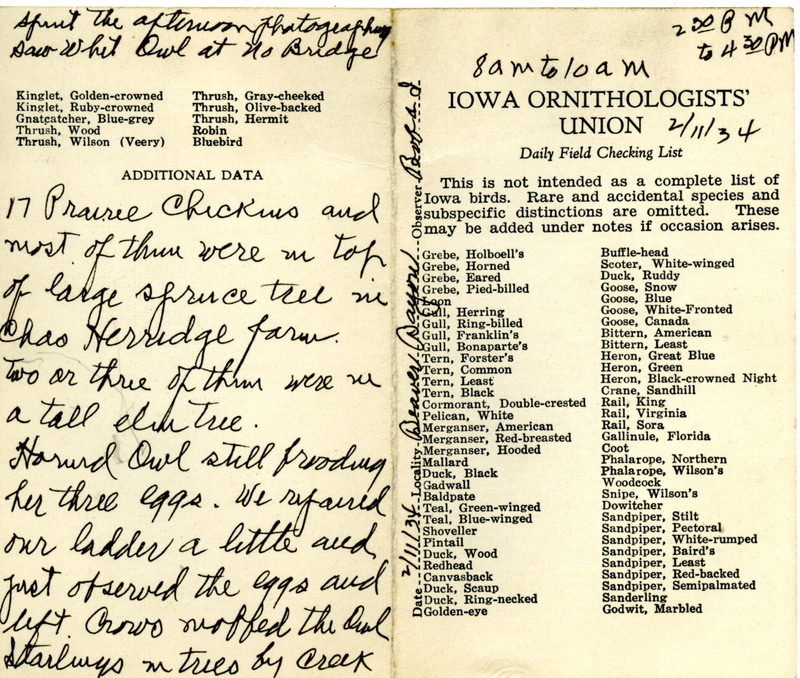 spent the afternoon photographing
saw Whet Owl at No Bridge
Kinglet, Golden-crowned
Kinglet, Ruby-crowned
Gnatcatcher, Blue-grey
Thrush, Wood
Thrush, Wilson (Veery)
Thrush, Gray-cheeked
Thrush, Olive-backed
Thrush, Hermit
Robin
Bluebird
ADDITIONAL DATA
17 Prairie Chickens and
most of them were in top
of large spruce tree in
Chas Herridge farm.
two or three of them were in
a tall elm tree.
Horned Owl still brooding
her three eggs. We repaired
our ladder a little and
just observed the eggs and
left. Crows mobbed the Owl
Starlings in trees by Creek
2 30 P M
to 4 30 PM
8 am to 10 am
IOWA ORNITHOLOGISTS'
UNION 2/11/34
Daily Field Checking List
This is not intended as a complete list of
Iowa birds. Rare and accidental species and
subspecific distinctions are omitted. These
may be added under notes if occasion arises.
Date 2/11/34 Locality Beaver Observer
Grebe, Holboell's
Grebe, Horned
Grebe, Eared
Grebe, Pied-billed
Loon
Gull, Herring
Gull, Ring-billed
Gull, Franklin's
Gull, Bonaparte's
Tern, Forster's
Tern, Common
Tern, Least
Tern, Black
Cormorant, Double-crested
Pelican, White
Merganser, American
Merganser, Red-breasted
Merganser, Hooded
Mallard
Duck, Black
Gadwall
Baldpate
Teal, Green-winged
Teal, Blue-winged
Shoveller
Pintail
Duck, Wood
Redhead
Canvasback
Duck, Scaup
Duck, Ring-necked
Golden-eye
Buffle-head
Scoter, White-winged
Duck, Ruddy
Goose, Snow
Goose, Blue
Goose, White-Fronted
Goose, Canada
Bittern, American
Bittern, Least
Heron, Great Blue
Heron, Green
Heron, Black-crowned Night
Crane, Sandhill
Rail, King
Rail, Virginia
Rail, Sora
Gallinule, Florida
Coot
Phalarope, Northern
Phalarope, Wilson's
Woodcock
Snipe, Wilson's
Dowitcher
Sandpiper, Stilt
Sandpiper, Pectoral
Sandpiper, White-rumped
Sandpiper, Baird's
Sandpiper, Least
Sandpiper, Red-backed
Sandpiper, Semipalmated
Sanderling
Godwit, Marbled